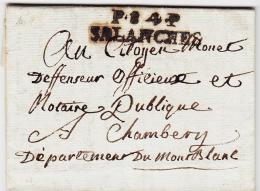 P.84.P
SALANCHES
Au Citoyen Monet
Deffenseur Officieux et
Notaire Publique
a Chambery
Département Du Mont Blanc